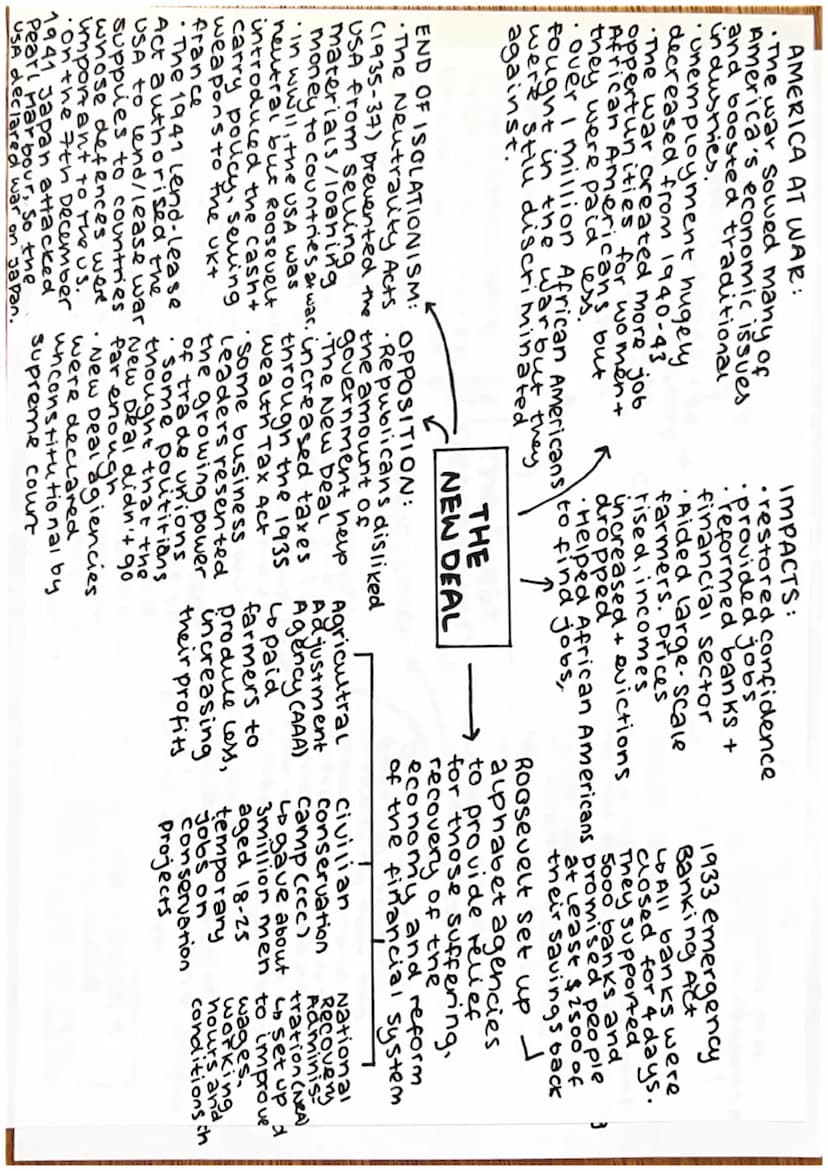 AMERICA AT WAR:
• The war solved many of
America's economic issues
and boosted traditional
industries.
• unemployment hugely
decreased from 1940-43
• The war created more job
oppertunities for women +
African Americans but
they were paid less.
• over 1 million African Americans
fought in the war but they
were still discriminated
against.
IMPACTS:
• restored confidence
• provided jobs
• reformed banks +
financial sector
• Aided large-scale
farmers. prices
rised, incomes
increased + evictions
dropped
• Helped African Americans
to find jobs,
1933 emergency
Banking Act
↳ All banks were
closed for 4 days.
They supported
5000 banks and
promised people
at least $2500 of
their savings back
THE
NEW DEAL
END OF ISOLATIONISM:
• The Neutrality Acts
(1935-37) prevented the
USA from selling
materials/loaning
money to countries at war.
• In WWII, the USA was
neutral but Roosevelt
introduced the cash +
carry policy, selling
weapons to the UK +
france
• The 1941 lend-lease
Act authorised the
USA to lend/lease war
supplies to countries
whose defences were
important to the US.
• on the 7th December
1941 Japan attacked
Pearl Harbour, so the
USA declared war on Japan.
OPPOSITION:
• Republicans disliked
the amount of
government help
• The New Deal
increased taxes
through the 1935
wealth Tax Act
• some business
leaders resented
the growing power
of trade unions
• some polititians
thought that the
New Deal didn't go
far enough
• New Deal agiencies
were declared
unconstitutional by
supreme court
Roosevelt set up
alphabet agencies
to provide relief
for those suffering,
recovery of the
economy and reform
of the financial system
Agricultral
Adjustment
Agency (AAA)
↳ paid
farmers to
produce less,
increasing
their profits
Civilian
conservation
camp (ccc)
↳ gave about
3million men
aged 18-25
temporary
jobs on
conservation
projects
National
Recovery
Adminis-
tration (NRA)
↳ set up
to improve
wages,
working
hours and
conditions